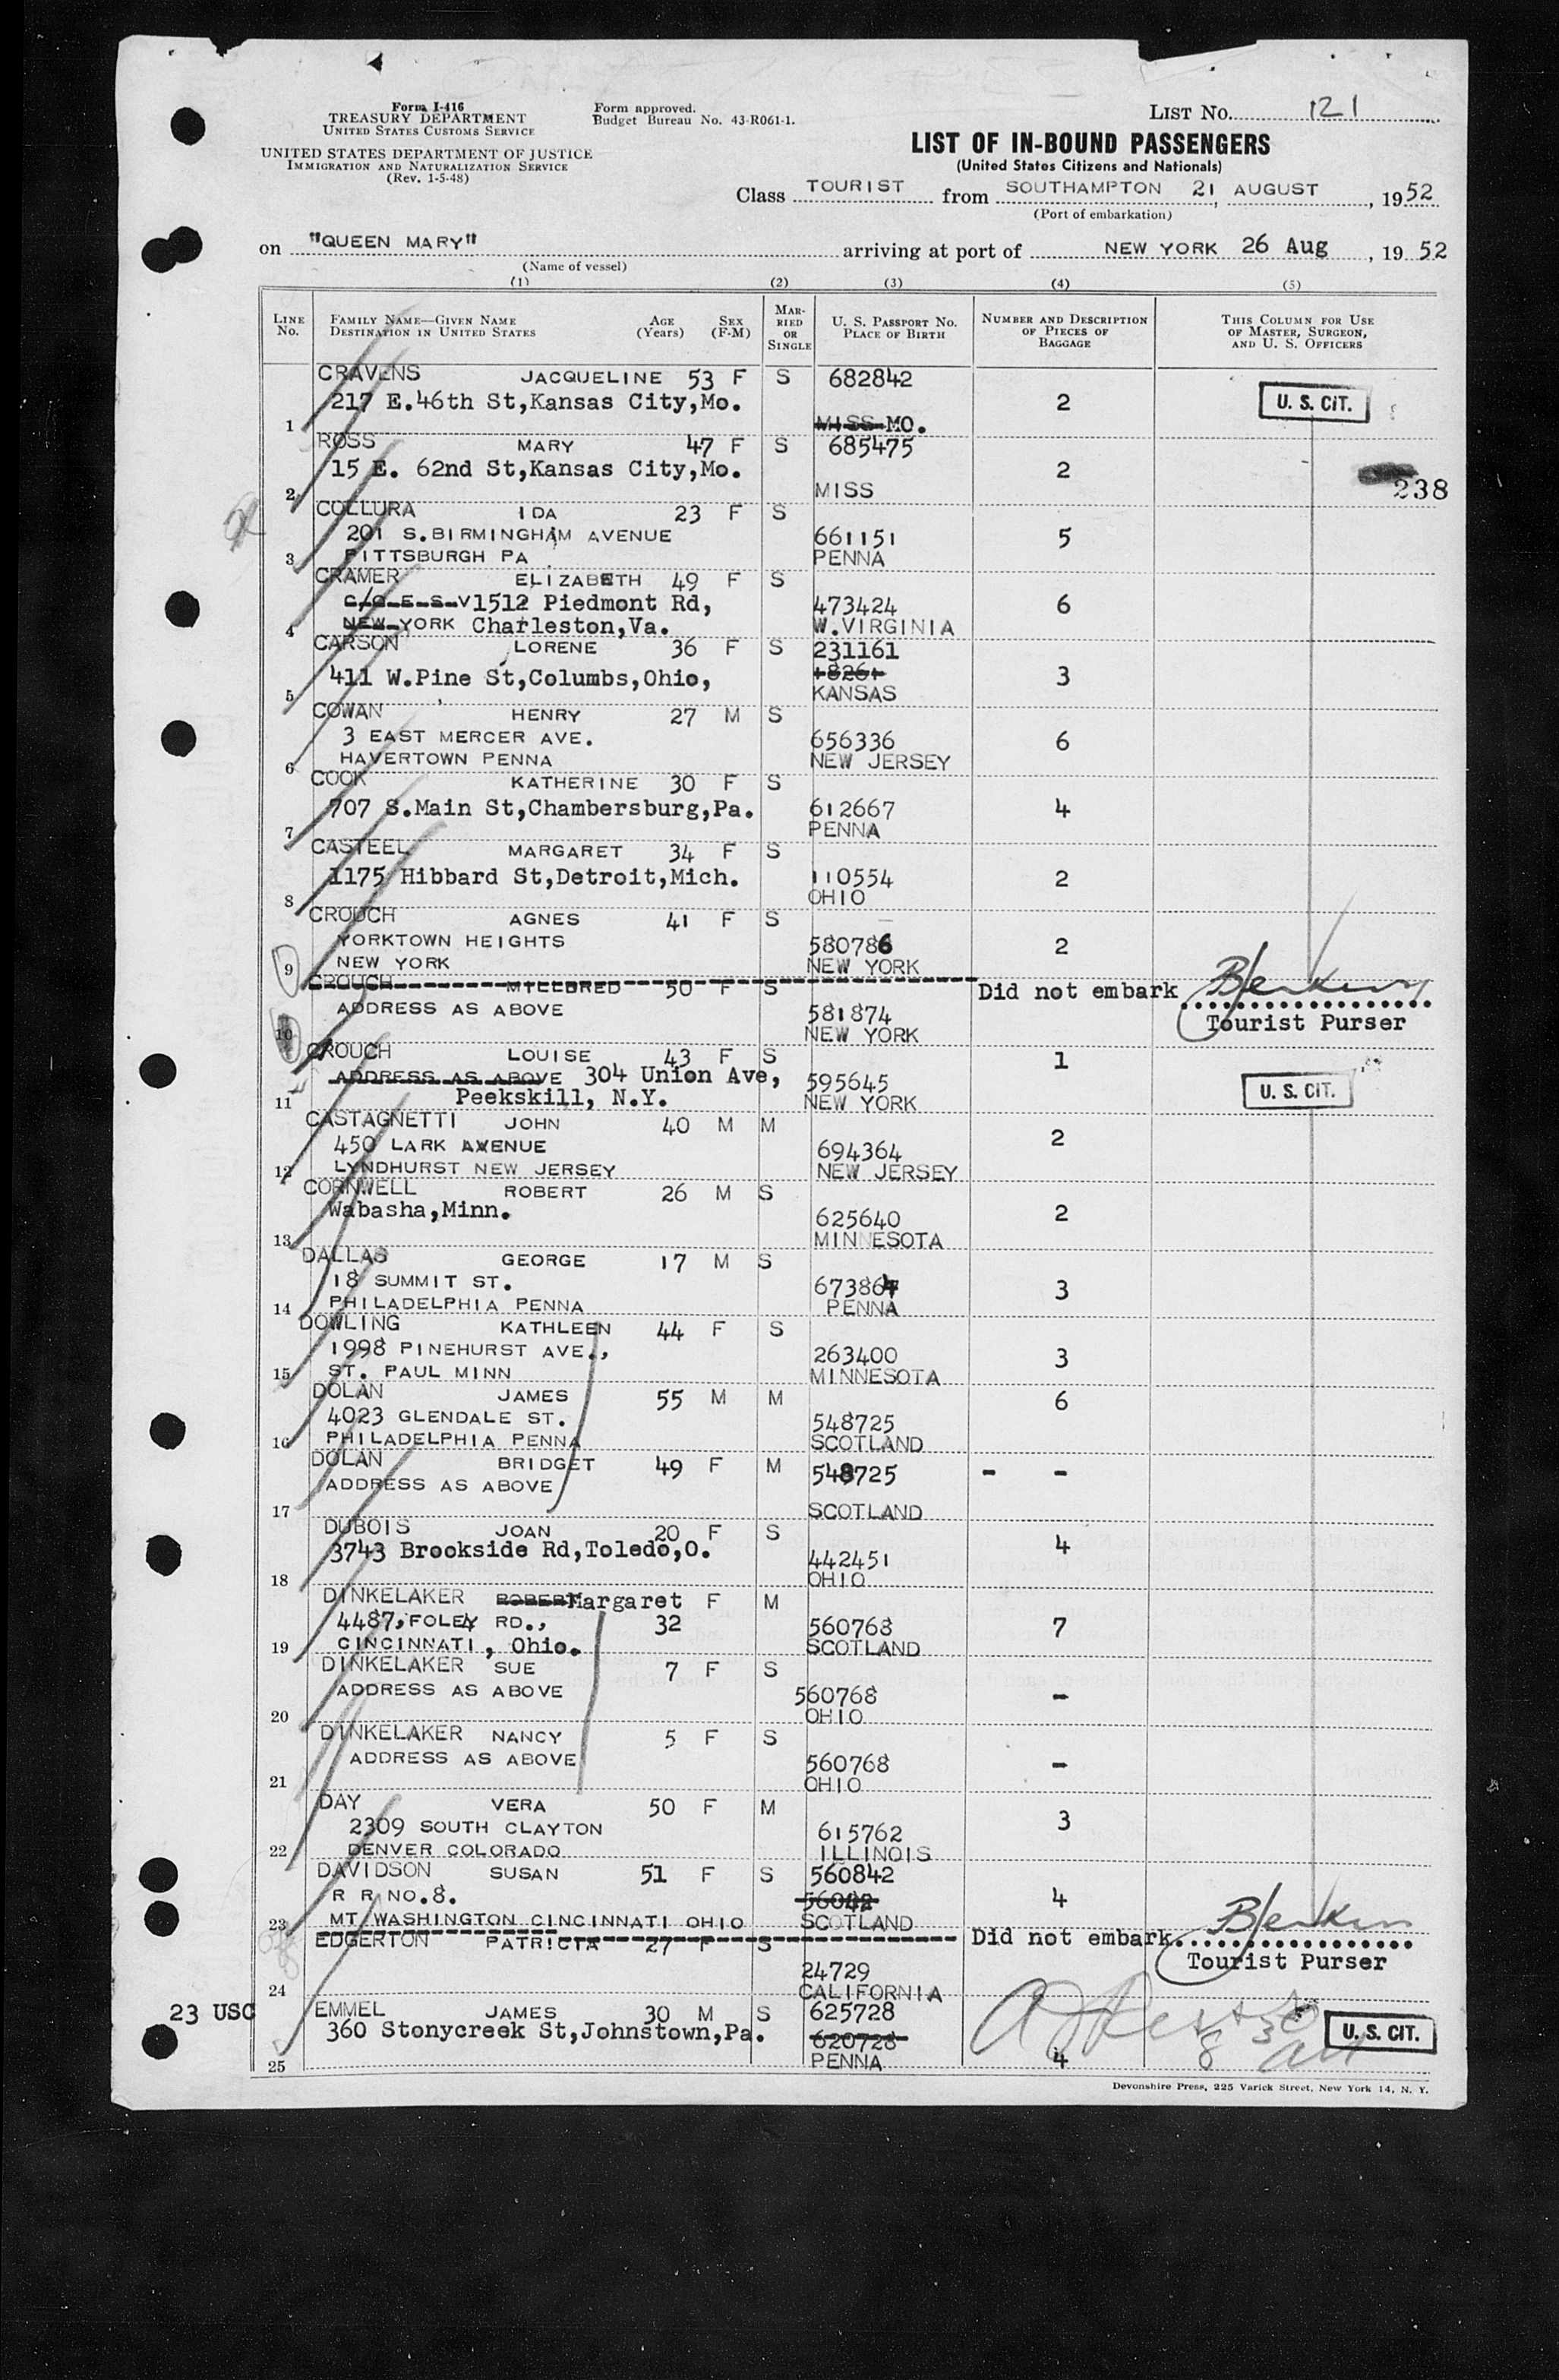 Form I-416
TREASURY DEPARTMENT
UNITED STATES CUSTOMS SERVICE
UNITED STATES DEPARTMENT OF JUSTICE
IMMIGRATION AND NATURALIZATION SERVICE
(Rev. 1-5-48)
Form approved.
Budget Bureau No. 43-R061-1.
LIST No. 121
LIST OF IN-BOUND PASSENGERS
(United States Citizens and Nationals)
Class TOURIST from SOUTHAMPTON 21, AUGUST, 1952
(Port of embarkation)
on "QUEEN MARY" arriving at port of NEW YORK 26 Aug, 1952
(Name of vessel)
(1) (2) (3) (4) (5)
LINE No. FAMILY NAME—GIVEN NAME DESTINATION IN UNITED STATES AGE (Years) SEX (F-M) MARRIED OR SINGLE U. S. PASSPORT NO. PLACE OF BIRTH NUMBER AND DESCRIPTION OF PIECES OF BAGGAGE THIS COLUMN FOR USE OF MASTER, SURGEON, AND U. S. OFFICERS
CRAVENS JACQUELINE 53 F S 682842
217 E.46th St,Kansas City,Mo. 2 U. S. CIT.
1 MISS MO.
ROSS MARY 47 F S 685475
15 E. 62nd St,Kansas City,Mo. 2
2 MISS 238
COLLURA IDA 23 F S
201 S.BIRMINGHAM AVENUE 661151 5
3 PITTSBURGH PA PENNA
CRAMER ELIZABETH 49 F S
C/O E S V 1512 Piedmont Rd, 473424 6
4 NEW YORK Charleston,Va. W.VIRGINIA
CARSON LORENE 36 F S 231161
411 W.Pine St,Columbs,Ohio, 18261 3
5 KANSAS
COWAN HENRY 27 M S
3 EAST MERCER AVE. 656336 6
6 HAVERTOWN PENNA NEW JERSEY
COOK KATHERINE 30 F S
707 S.Main St,Chambersburg,Pa. 612667 4
7 PENNA
CASTEEL MARGARET 34 F S
1175 Hibbard St,Detroit,Mich. 110554 2
8 OHIO
CROUCH AGNES 41 F S
YORKTOWN HEIGHTS 580786 2
9 NEW YORK NEW YORK
CROUCH MILLDRED 50 F S Did not embark
ADDRESS AS ABOVE 581874 Tourist Purser
10 NEW YORK
CROUCH LOUISE 43 F S 1
ADDRESS AS ABOVE 304 Union Ave, 595645 U. S. CIT.
11 Peekskill, N.Y. NEW YORK
CASTAGNETTI JOHN 40 M M
450 LARK AVENUE 694364 2
12 LYNDHURST NEW JERSEY NEW JERSEY
CORNWELL ROBERT 26 M S
Wabasha,Minn. 625640 2
13 MINNESOTA
DALLAS GEORGE 17 M S
18 SUMMIT ST. 673864 3
14 PHILADELPHIA PENNA PENNA
DOWLING KATHLEEN 44 F S
1998 PINEHURST AVE., 263400 3
15 ST. PAUL MINN MINNESOTA
DOLAN JAMES 55 M M 6
4023 GLENDALE ST. 548725
16 PHILADELPHIA PENNA SCOTLAND
DOLAN BRIDGET 49 F M 548725 - -
ADDRESS AS ABOVE
17 SCOTLAND
DUBOIS JOAN 20 F S
3743 Brookside Rd,Toledo,O. 442451 4
18 OHIO
DINKELAKER ROBERT Margaret F M
4487, FOLEY RD., 32 560768 7
19 CINCINNATI, Ohio. SCOTLAND
DINKELAKER SUE 7 F S
ADDRESS AS ABOVE 560768 -
20 OHIO
DINKELAKER NANCY 5 F S
ADDRESS AS ABOVE 560768 -
21 OHIO
DAY VERA 50 F M
2309 SOUTH CLAYTON 615762 3
22 DENVER COLORADO ILLINOIS
DAVIDSON SUSAN 51 F S 560842
R R NO.8. 56042 4
23 MT WASHINGTON CINCINNATI OHIO SCOTLAND
EDGERTON PATRICIA 27 F S Did not embark
24729 Tourist Purser
24 CALIFORNIA
23 USC EMMEL JAMES 30 M S 625728
360 Stonycreek St,Johnstown,Pa. 620728 U. S. CIT.
25 PENNA 4
Devonshire Press, 225 Varick Street, New York 14, N. Y.